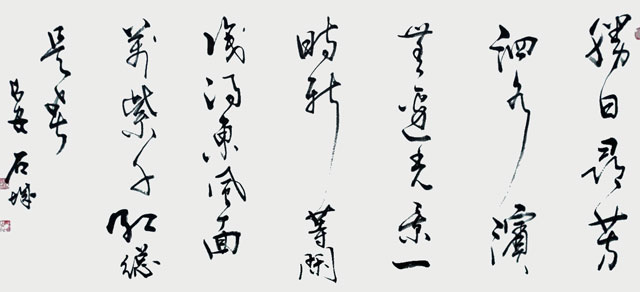 勝日尋芳
泗水濱
無邊光景一
時新等閑
識得東風面
萬紫千紅總
是春
長安 石